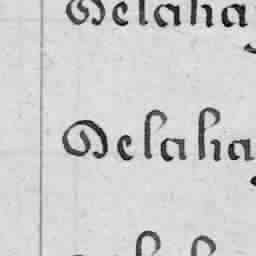 Delahay
Delahay